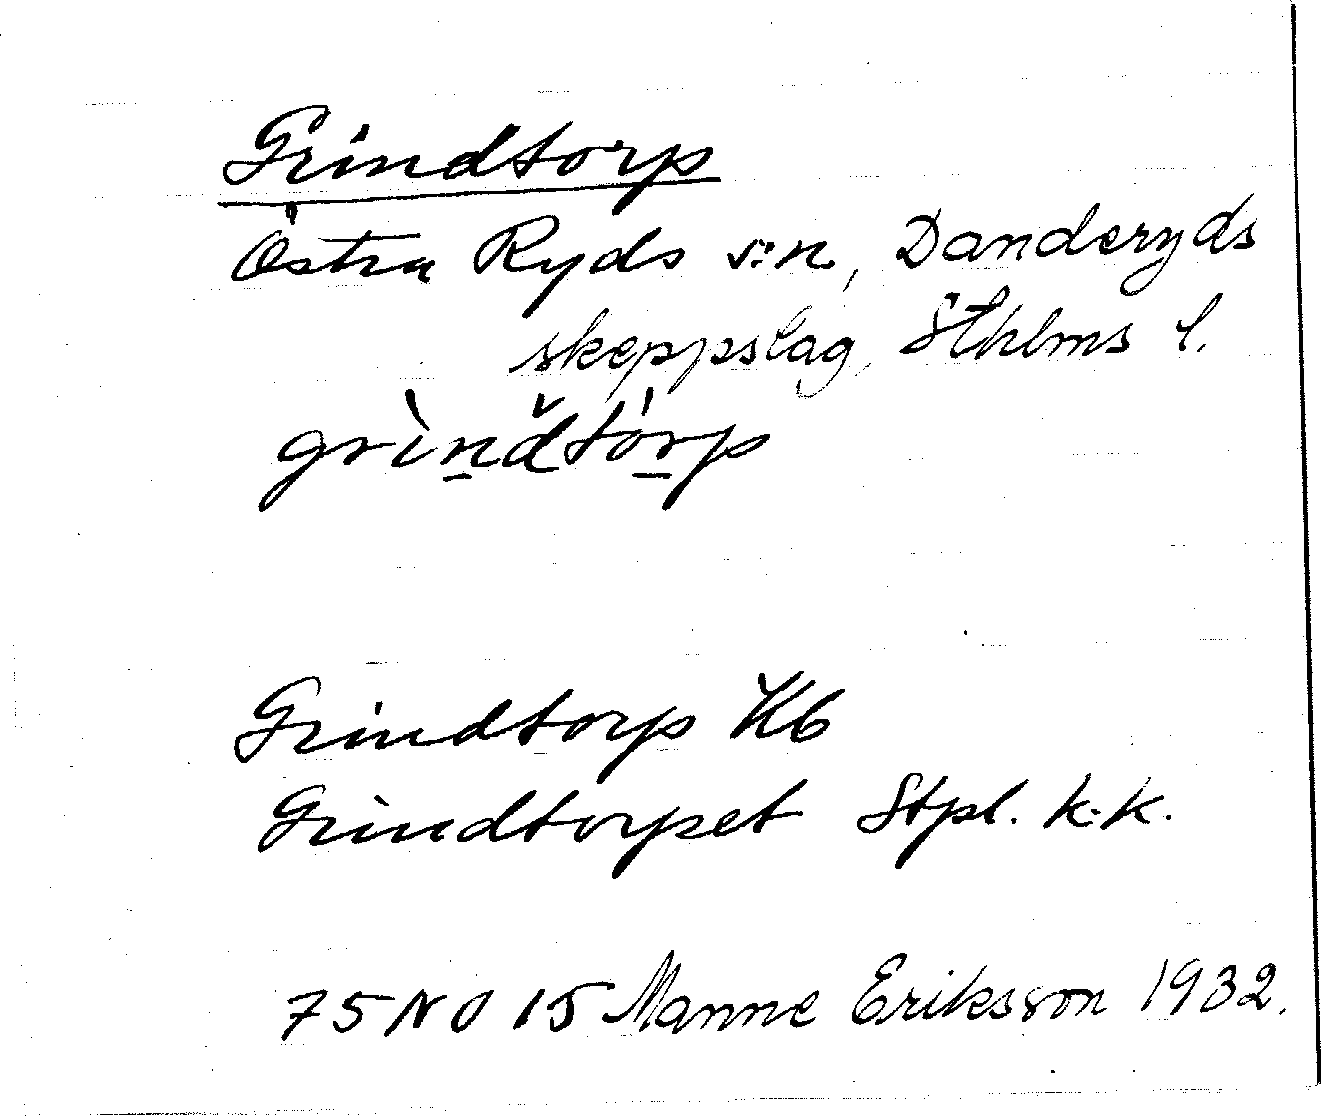 Grindtorp
Östra Ryds s:n, Danderyds
skeppslag, Sthlms l.
grìnd̆tórp
Grindtorp Kb
Grindtorpet Stpl. k.k.
75 NO 15 Manne Eriksson 1932.